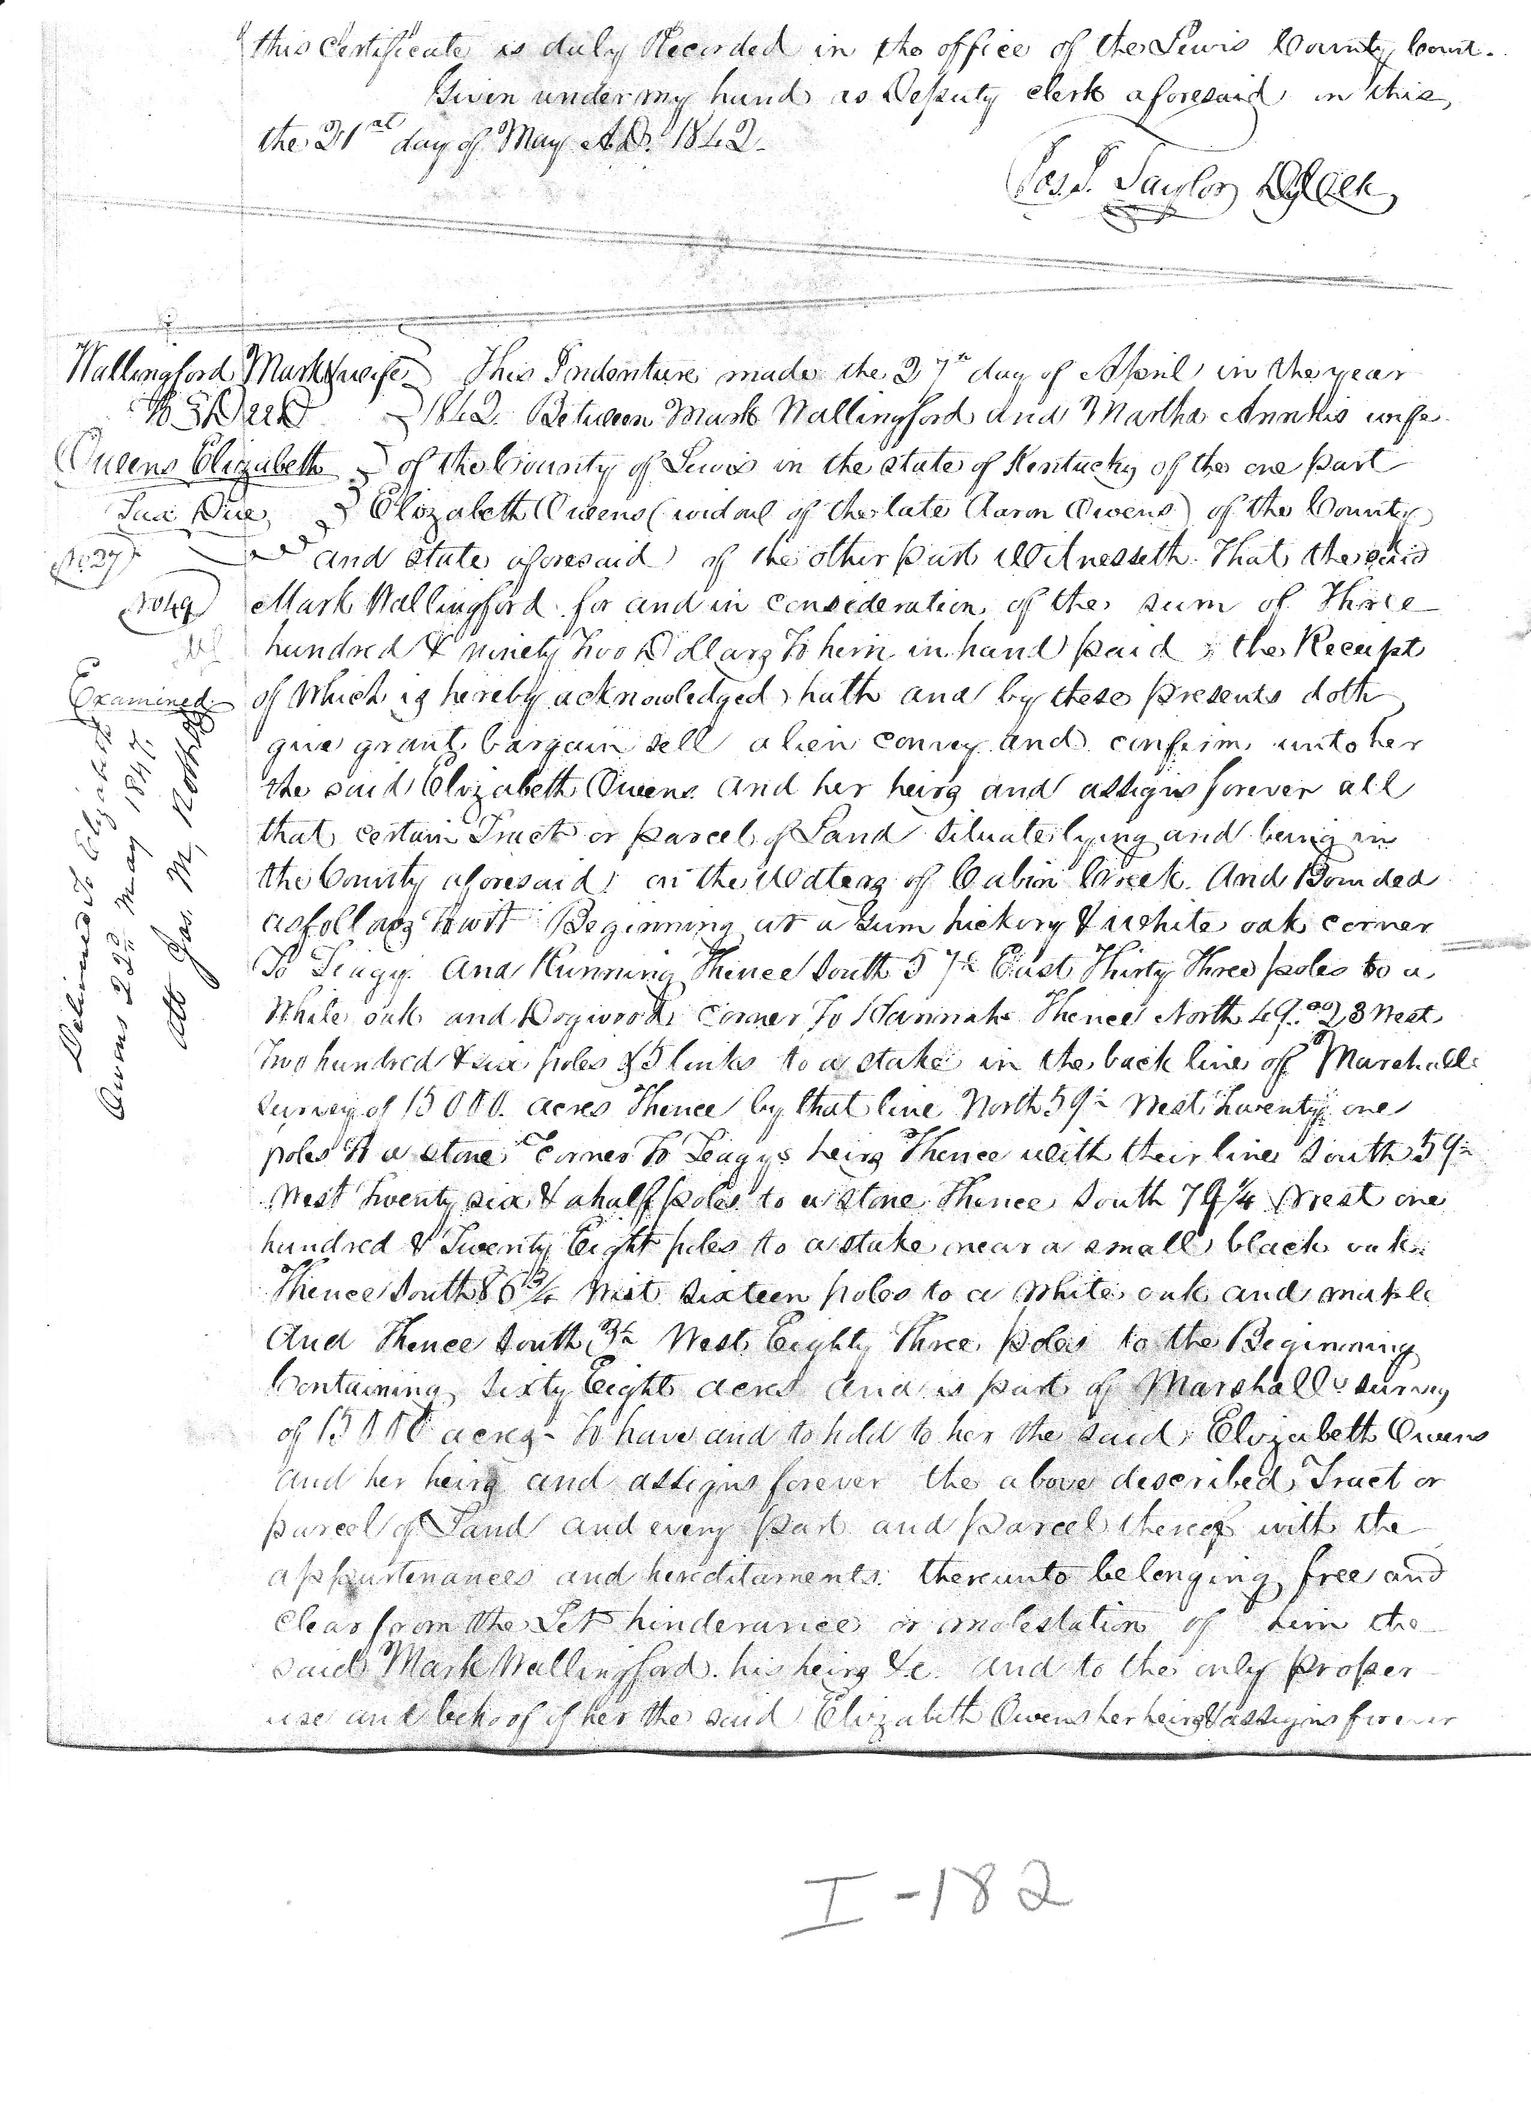 this Certificate is duly Recorded in the office of the Lewis County Court.
Given under my hand as Deputy clerk aforesaid on this,
the 21st day of May A.D. 1842.
Jos. J. Taylor Dy Clk
Wallingford Mark & wife
To } Deed
Owens Elizabeth
Tax Due
No 27
No 49
Examined
Delivered To Elizabeth
Owens 22d May 1847.
att Jas. M,
This Indenture made the 27th day of April in the year
1842. Between Mark Wallingford and Martha Ann his wife
of the County of Lewis in the state of Kentucky of the one part
Elizabeth Owens (widow of the late Aaron Owens) of the County
and state aforesaid of the other part Witnesseth. That the said
Mark Wallingford for and in consideration of the sum of Three
hundred & ninety Two Dollars To him in hand paid; the Receipt
of which is hereby acknowledged hath and by these presents doth
give grant bargain sell alien convey and confirm unto her
the said Elizabeth Owens and her heirs and assigns forever all
that certain Tract or parcel of Land situate lying and being in
the County aforesaid on the Waters of Cabin Creek. And Bounded
as follows Towit Beginning at a Gum hickory & white oak corner
To Teagy. And Running Thence South 57d East Thirty Three poles to a
White oak and Dogwood corner To Hannah Thence North 49 23 West
Two hundred & six poles & 5 links to a stake in the back line of Marshalls
survey of 15000 acres Thence by that line North 59d West Twenty one
poles To a stone Corner To Teagys heirs Thence with their line South 59d
West Twenty six & a half poles to a stone Thence South 79¼ West one
hundred & Twenty Eight poles to a stake near a small black oak.
Thence South 86¾ West sixteen poles to a White oak and maple
And Thence South 3d West Eighty Three poles to the Beginning
Containing Sixty Eight acres and is part of Marshalls survey
of 15000 acres - To have and to hold to her the said Elizabeth Owens
and her heirs and assigns forever the above described Tract or
parcel of Land and every part and parcel thereof with the
appurtenances and hereditaments thereunto belonging free and
Clear from the Let hinderance or molestation of him the
said Mark Wallingford. his heirs &c. and to the only proper
use and behoof of her the said Elizabeth Owens her heirs & assigns forever
I-182